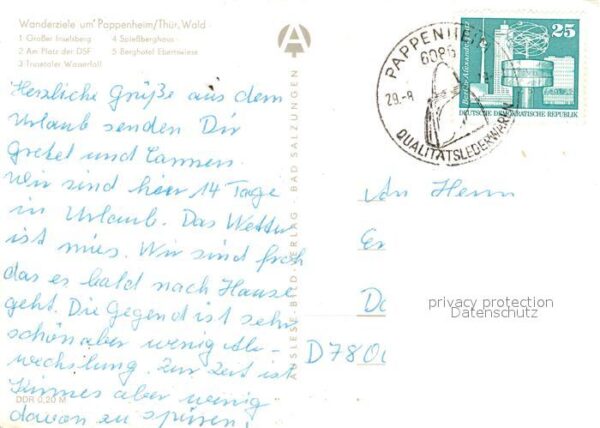 Wanderziele um Pappenheim/Thür. Wald
1 Großer Inselsberg 4 Spießberghaus
2 Am Platz der DSF 5 Berghotel Ebertswiese
3 Trusetaler Wasserfall
AUSLESE-BILD-VERLAG · BAD SALZUNGEN
DDR 0,20 M
PAPPENHEIM
6086
29.-8.
QUALITÄTSLEDERWAREN
25
Berlin-Alexanderplatz
DEUTSCHE DEMOKRATISCHE REPUBLIK
Herzliche Grüße aus dem
Urlaub senden Dir
Gretel und Carmen.
Wir sind hier 14 Tage
in Urlaub. Das Wetter
ist mies. Wir sind froh
das es bald nach Hause
geht. Die Gegend ist sehr
schön aber wenig Ab-
wechslung. Zur Zeit ist
Kirmes aber wenig
davon zu spüren!
An Herrn
D780
privacy protection
Datenschutz